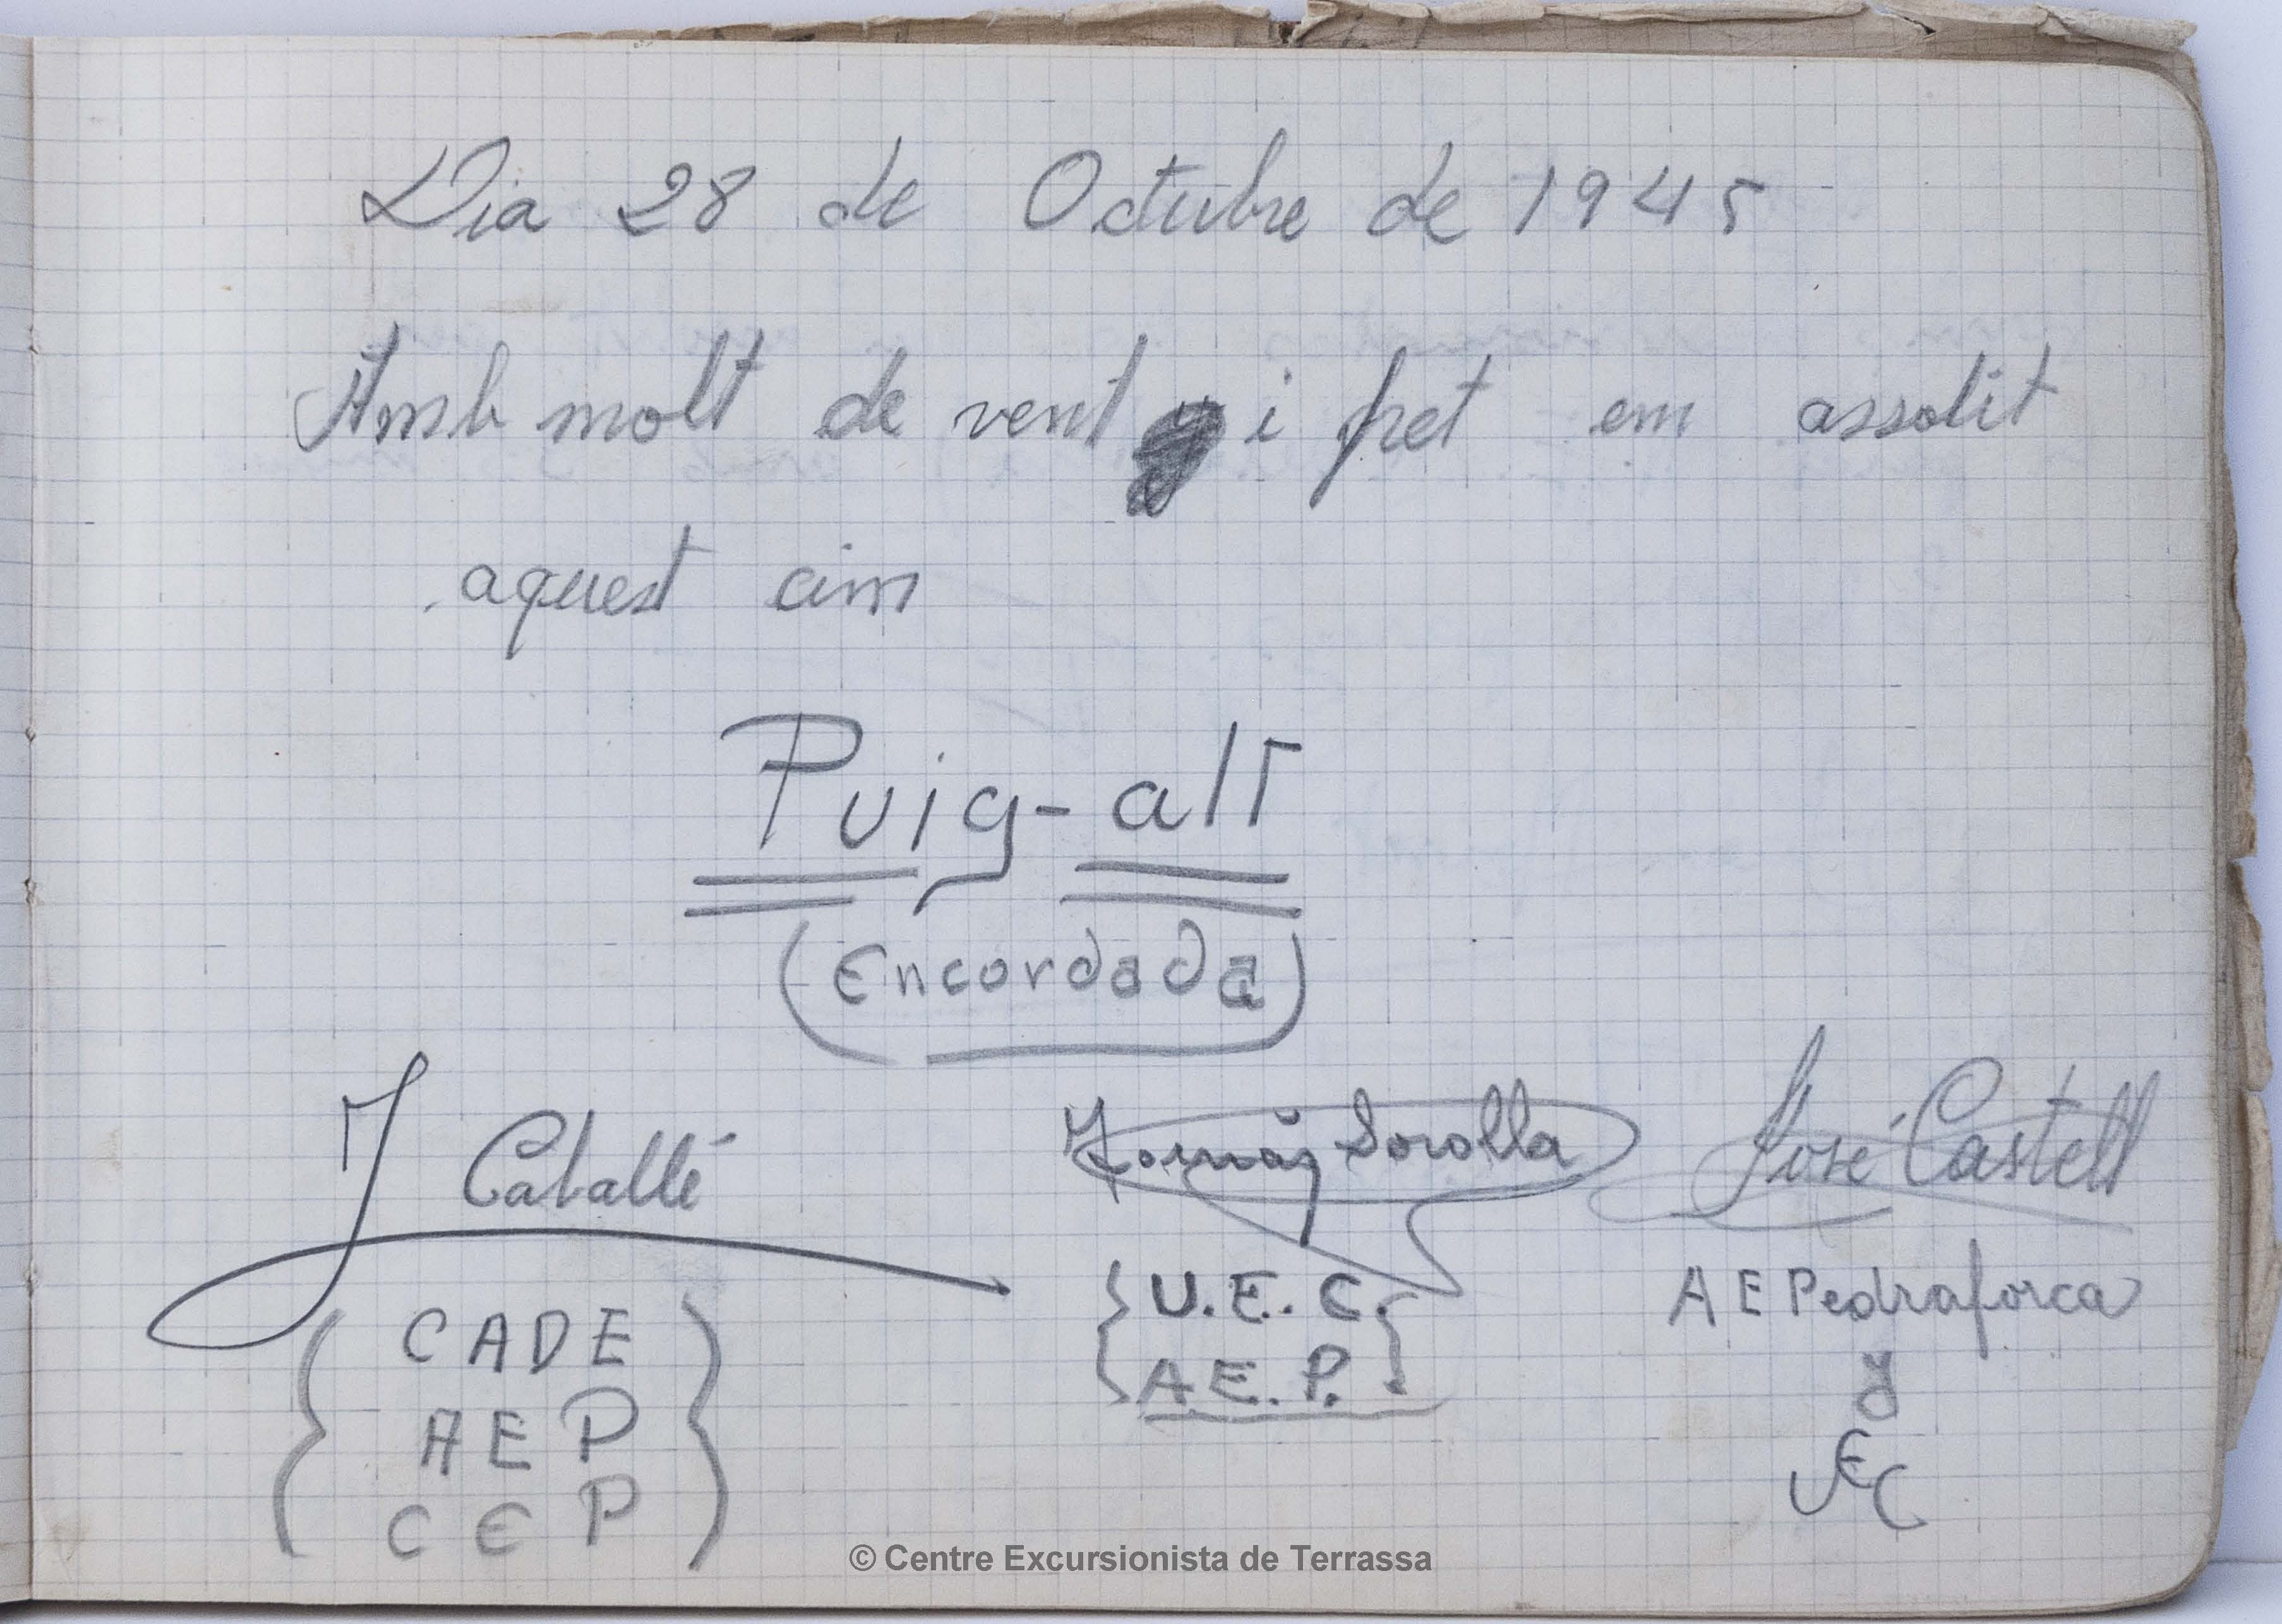 Dia 28 de Octubre de 1945
Amb molt de vent i fret em assolit
aquest cim
Puig-alt
(Encordada)
J Caballé
Tomás Sorolla
José Castell
CADE
AEP
CEP
U.E.C.
A.E.P.
A E Pedraforca
y
UEC
© Centre Excursionista de Terrassa